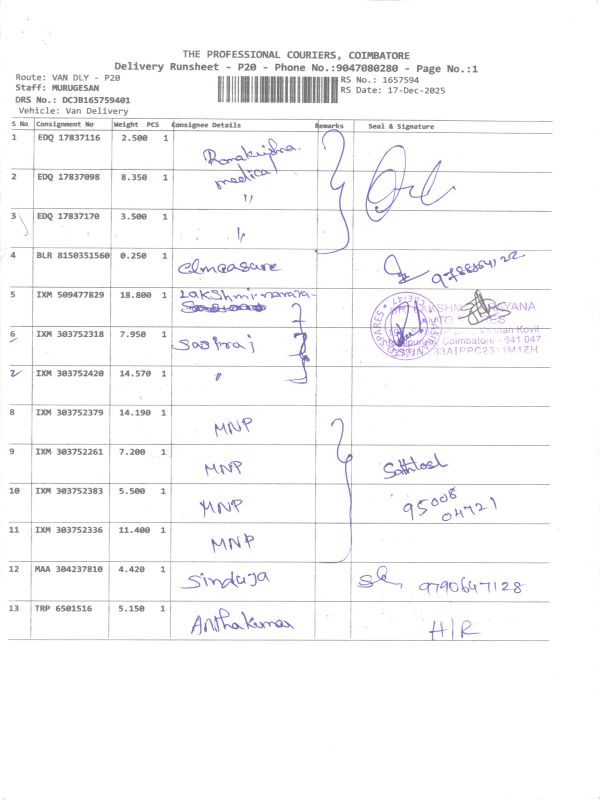 THE PROFESSIONAL COURIERS, COIMBATORE
Delivery Runsheet - P20 - Phone No.:9047080280 - Page No.:1
Route: VAN DLY - P20
RS No.: 1657594
Staff: MURUGESAN
RS Date: 17-Dec-2025
DRS No.: DCJB165759401
Vehicle: Van Delivery
S No Consignment No Weight PCS Consignee Details Remarks Seal & Signature
1 EDQ 17837116 2.500 1 Ramakrishna
medical
2 EDQ 17837098 8.350 1 "
3 EDQ 17837170 3.500 1 "
4 BLR 8150351560 0.250 1 Elmeasure
5 IXM 509477829 18.800 1 Lakshmi naraya-
6 IXM 303752318 7.950 1 Sagiraj
IXM 303752420 14.570 1 "
Coimbatore - 641 047
8 IXM 303752379 14.190 1 MNP
9 IXM 303752261 7.200 1 MNP
10 IXM 303752383 5.500 1 MNP 95008
04721
11 IXM 303752336 11.400 1 MNP
12 MAA 304237810 4.420 1 Sinduja 9790647128
13 TRP 6501516 5.150 1 Anthakumar H/R